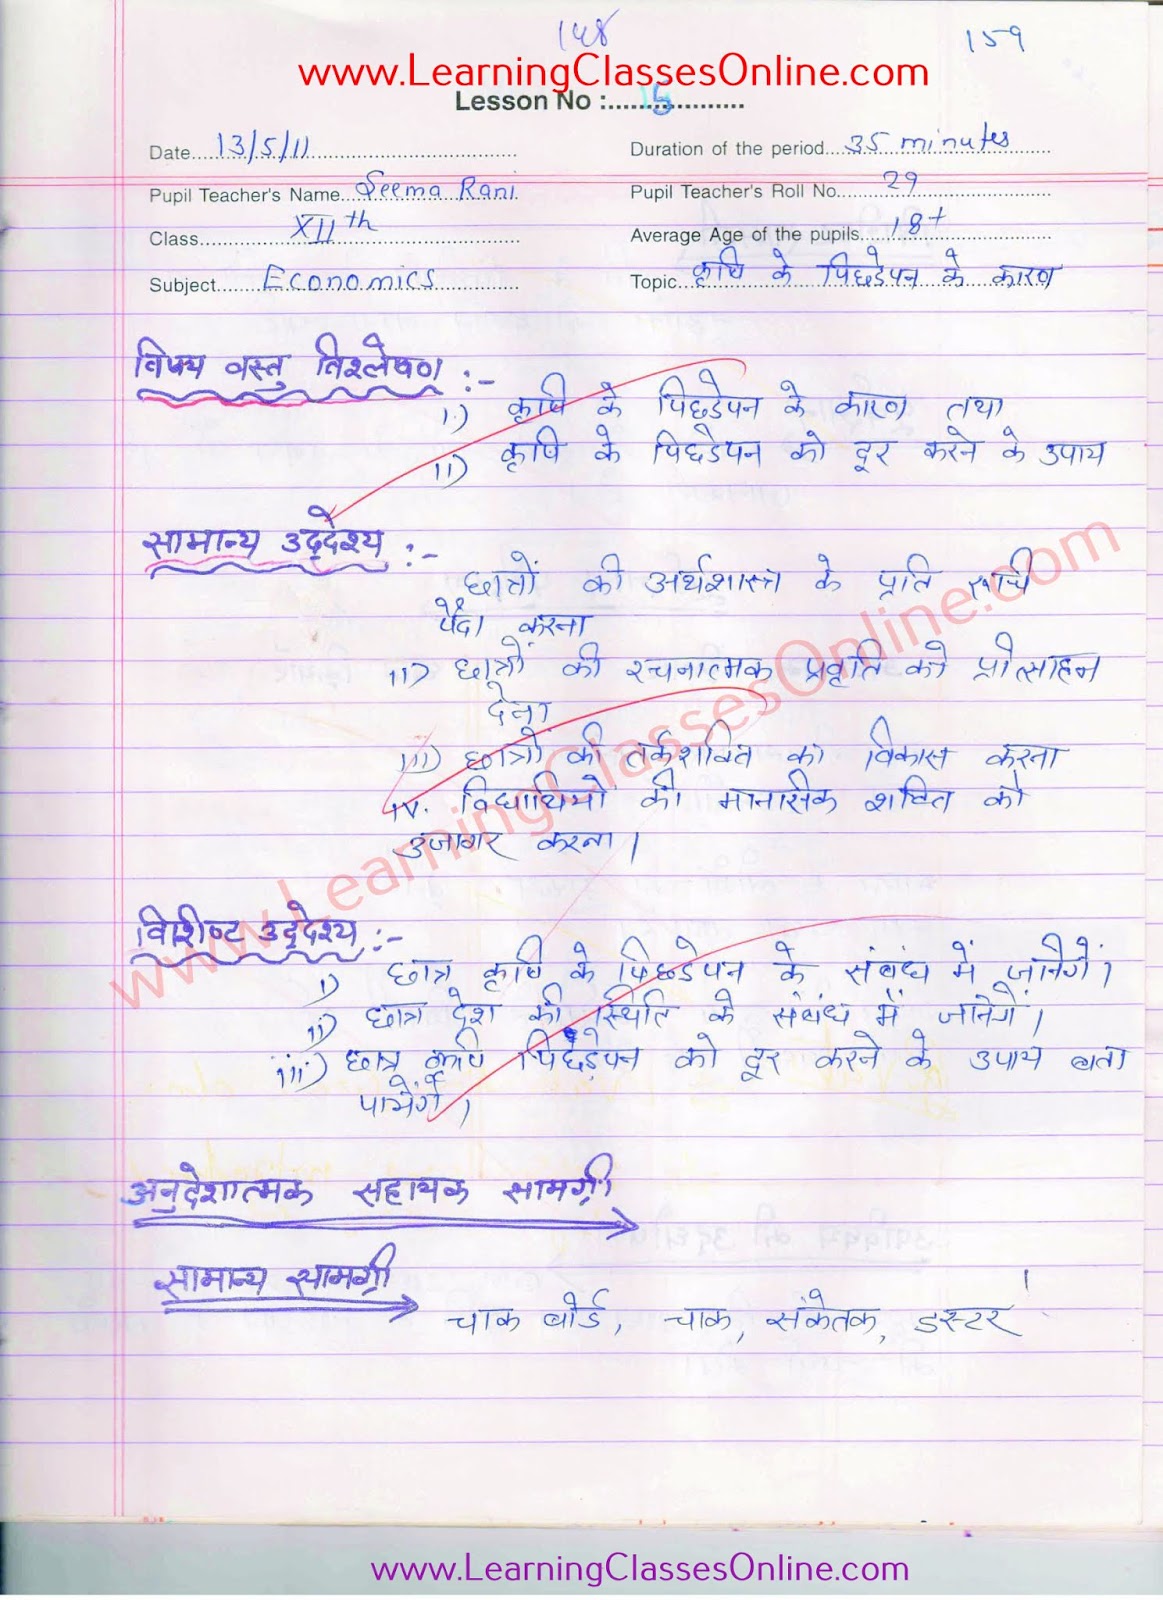 148
159
www.LearningClassesOnline.com
Lesson No :.....15.............
Date....13/5/11
Duration of the period...35 minutes
Pupil Teacher's Name...Seema Rani
Pupil Teacher's Roll No.......29
Class..........XIIth
Average Age of the pupils.....18+
Subject.......Economics
Topic...कृषि के पिछडेपन के कारण
विषय वस्तु विश्लेषण :-
i) कृषि के पिछडेपन के कारण तथा
ii) कृषि के पिछडेपन को दूर करने के उपाय
सामान्य उद्देश्य :-
छात्रों की अर्थशास्त्र के प्रति रूची
पैदा करना
ii) छात्रों की रचनात्मक प्रवृति को प्रोत्साहन
देना
iii) छात्रों की तर्कशक्ति का विकास करना
iv. विद्यार्थियो की मानसिक शक्ति को
उजागर करना।
विशिष्ट उद्देश्य :-
i) छात्र कृषि के पिछडेपन के संबंध में जानेगें।
ii) छात्र देश की स्थिति के संबंध में जानेगें।
iii) छात्र कृषि पिछड़ेपन को दूर करने के उपाय बता
पायेंगें।
अनुदेशात्मक सहायक सामग्री
सामान्य सामग्री
चाक बोर्ड, चाक, संकेतक, डस्टर।
www.LearningClassesOnline.com
www.LearningClassesOnline.com